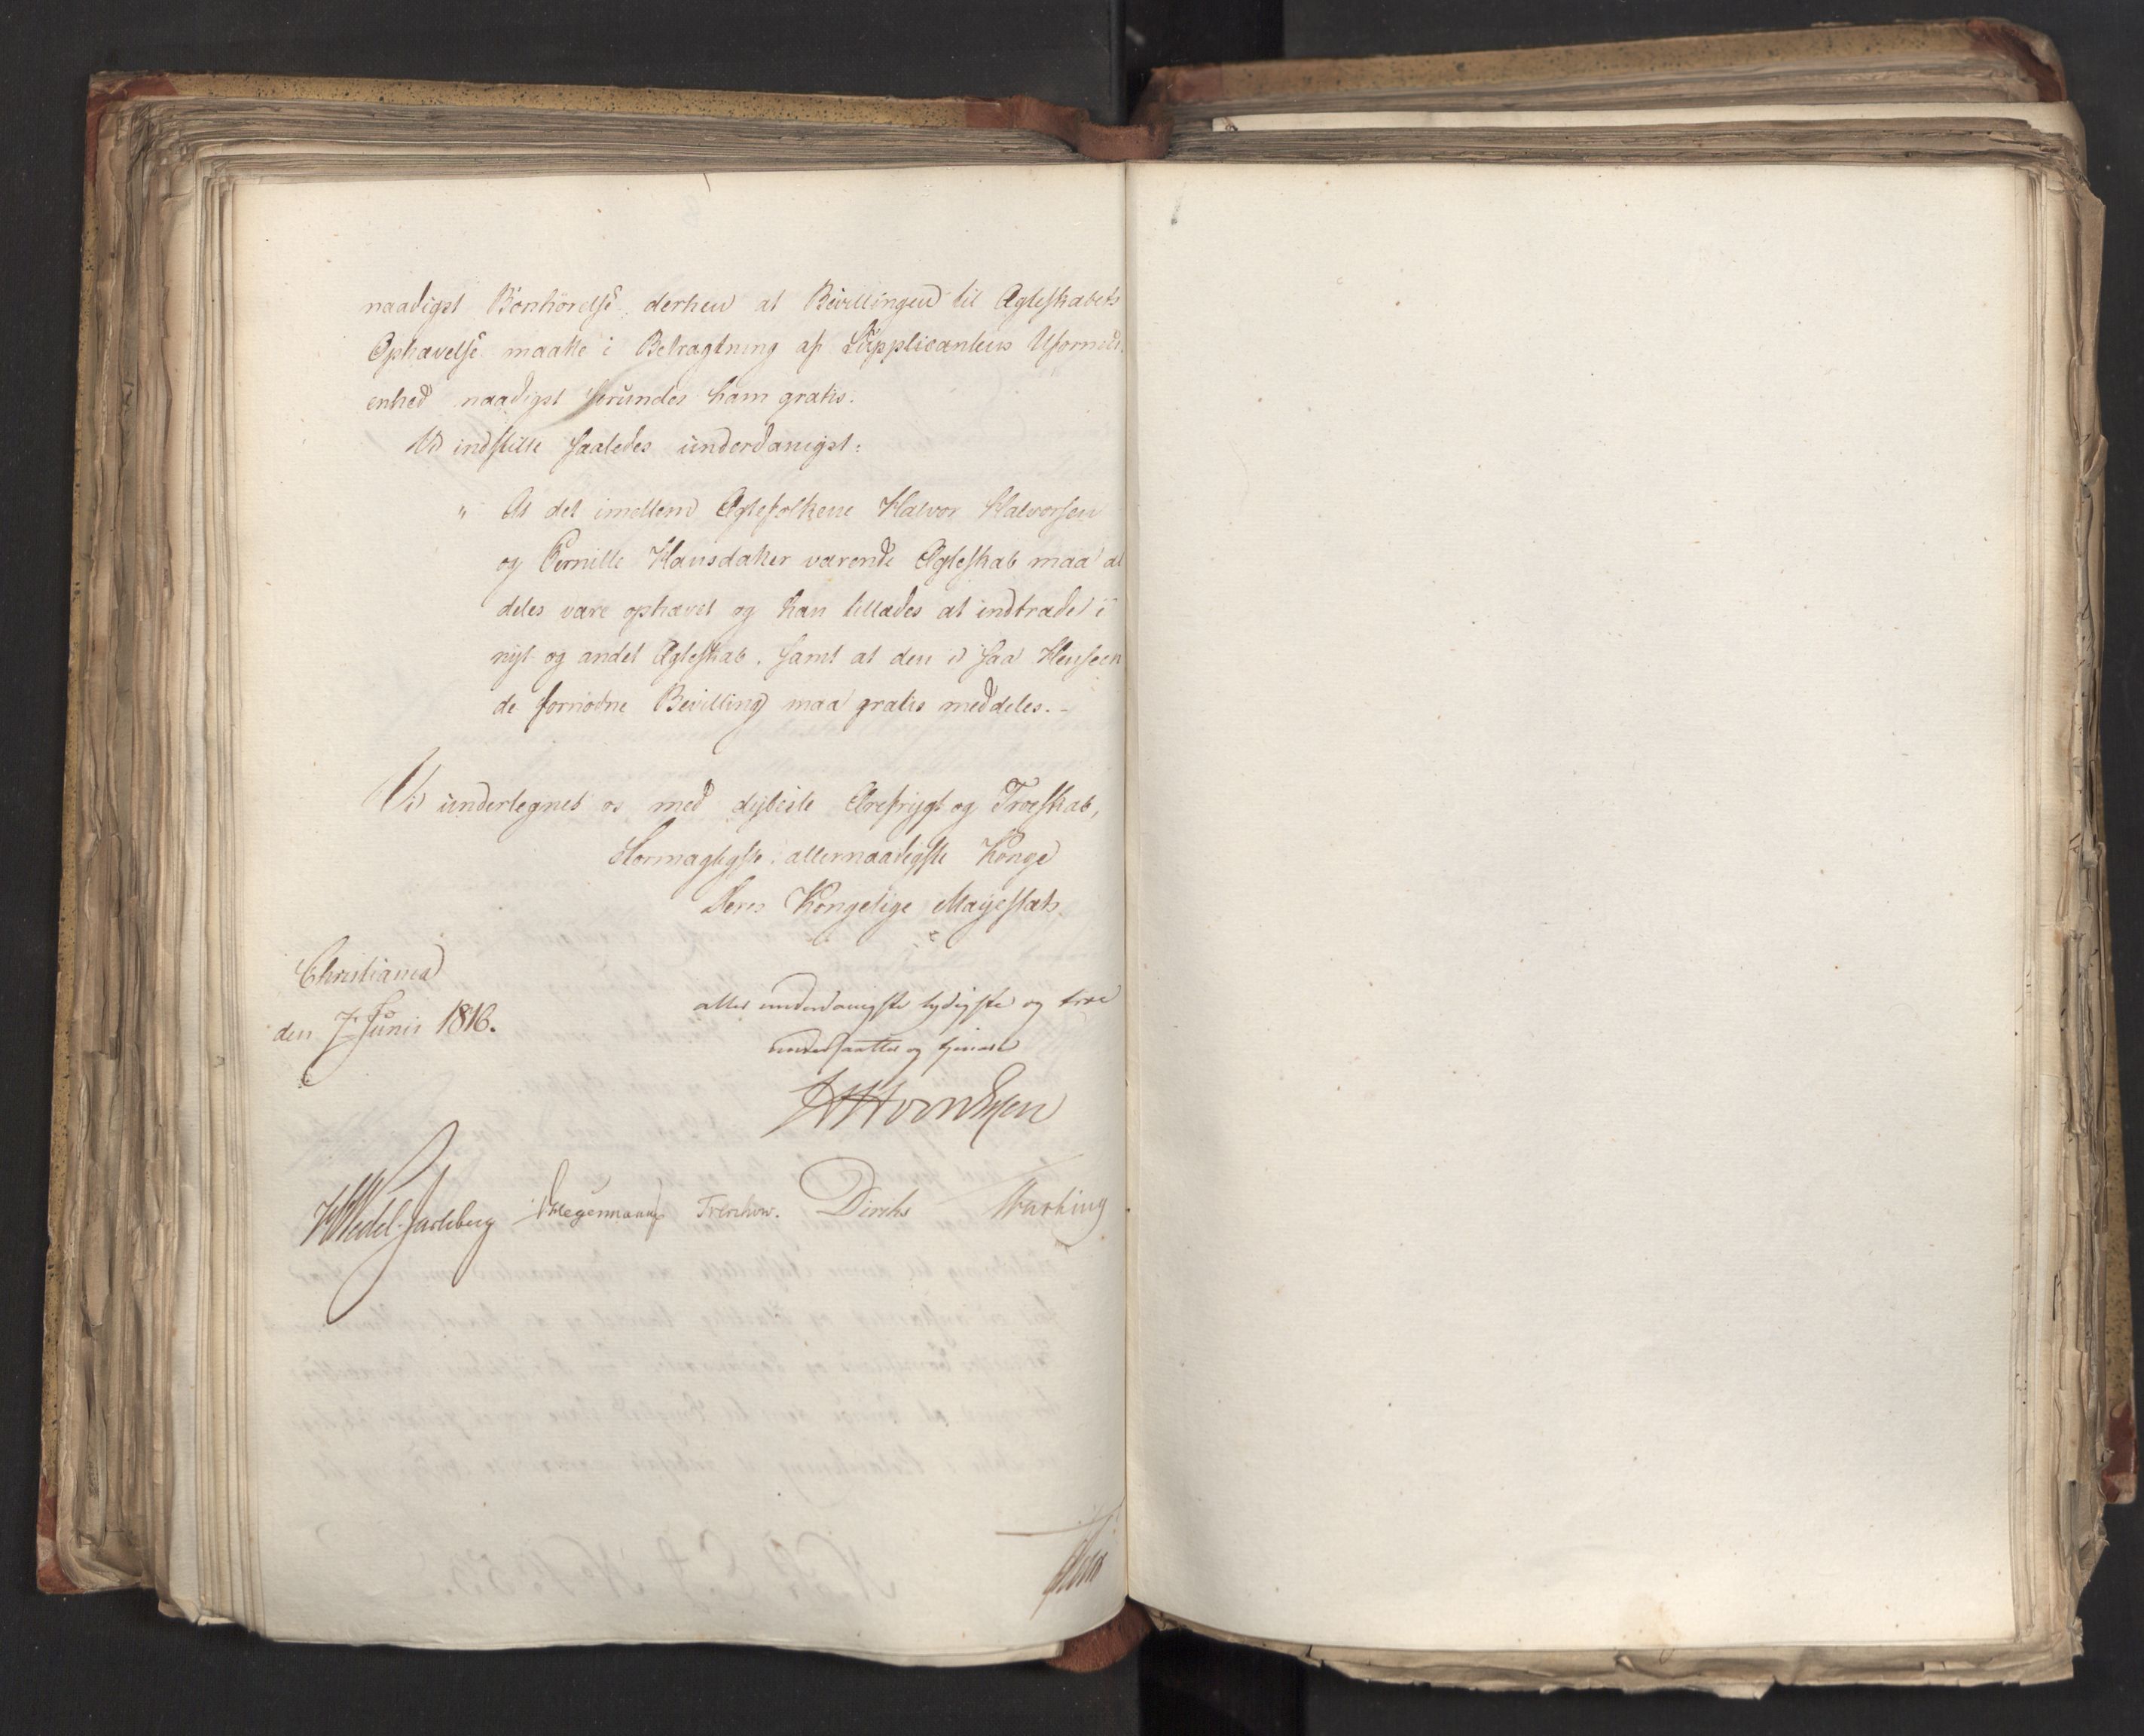 naadigst Bønhørelse, derhen at Bevillingen til Ægteskabets
Ophævelse maatte i Betragtning af Supplicantens Uformu-
enhed naadigst forundes ham gratis.
Vi indstille saaledes underdanigst:
" At det imellem Ægtefolkene Halvor Halvorsen
og Pernille Hansdatter værende Ægteskab maa al
deles være ophævet og han tillades at indtræde i
nyt og andet Ægteskab, samt at den i saa Henseen
de fornødne Bevilling maa gratis meddeles.-
Vi undertegne os med dybeste Ærefrygt og Troeskab,
Stormægtigste, allernaadigste Konge
Deres Kongelige Majestæts
Christiania
den 7 Junii 1816.
aller underdanigste lydigste og troe
undersaatter og tjenere
Wedel Jarlsberg Hegermann Treschow. Diriks